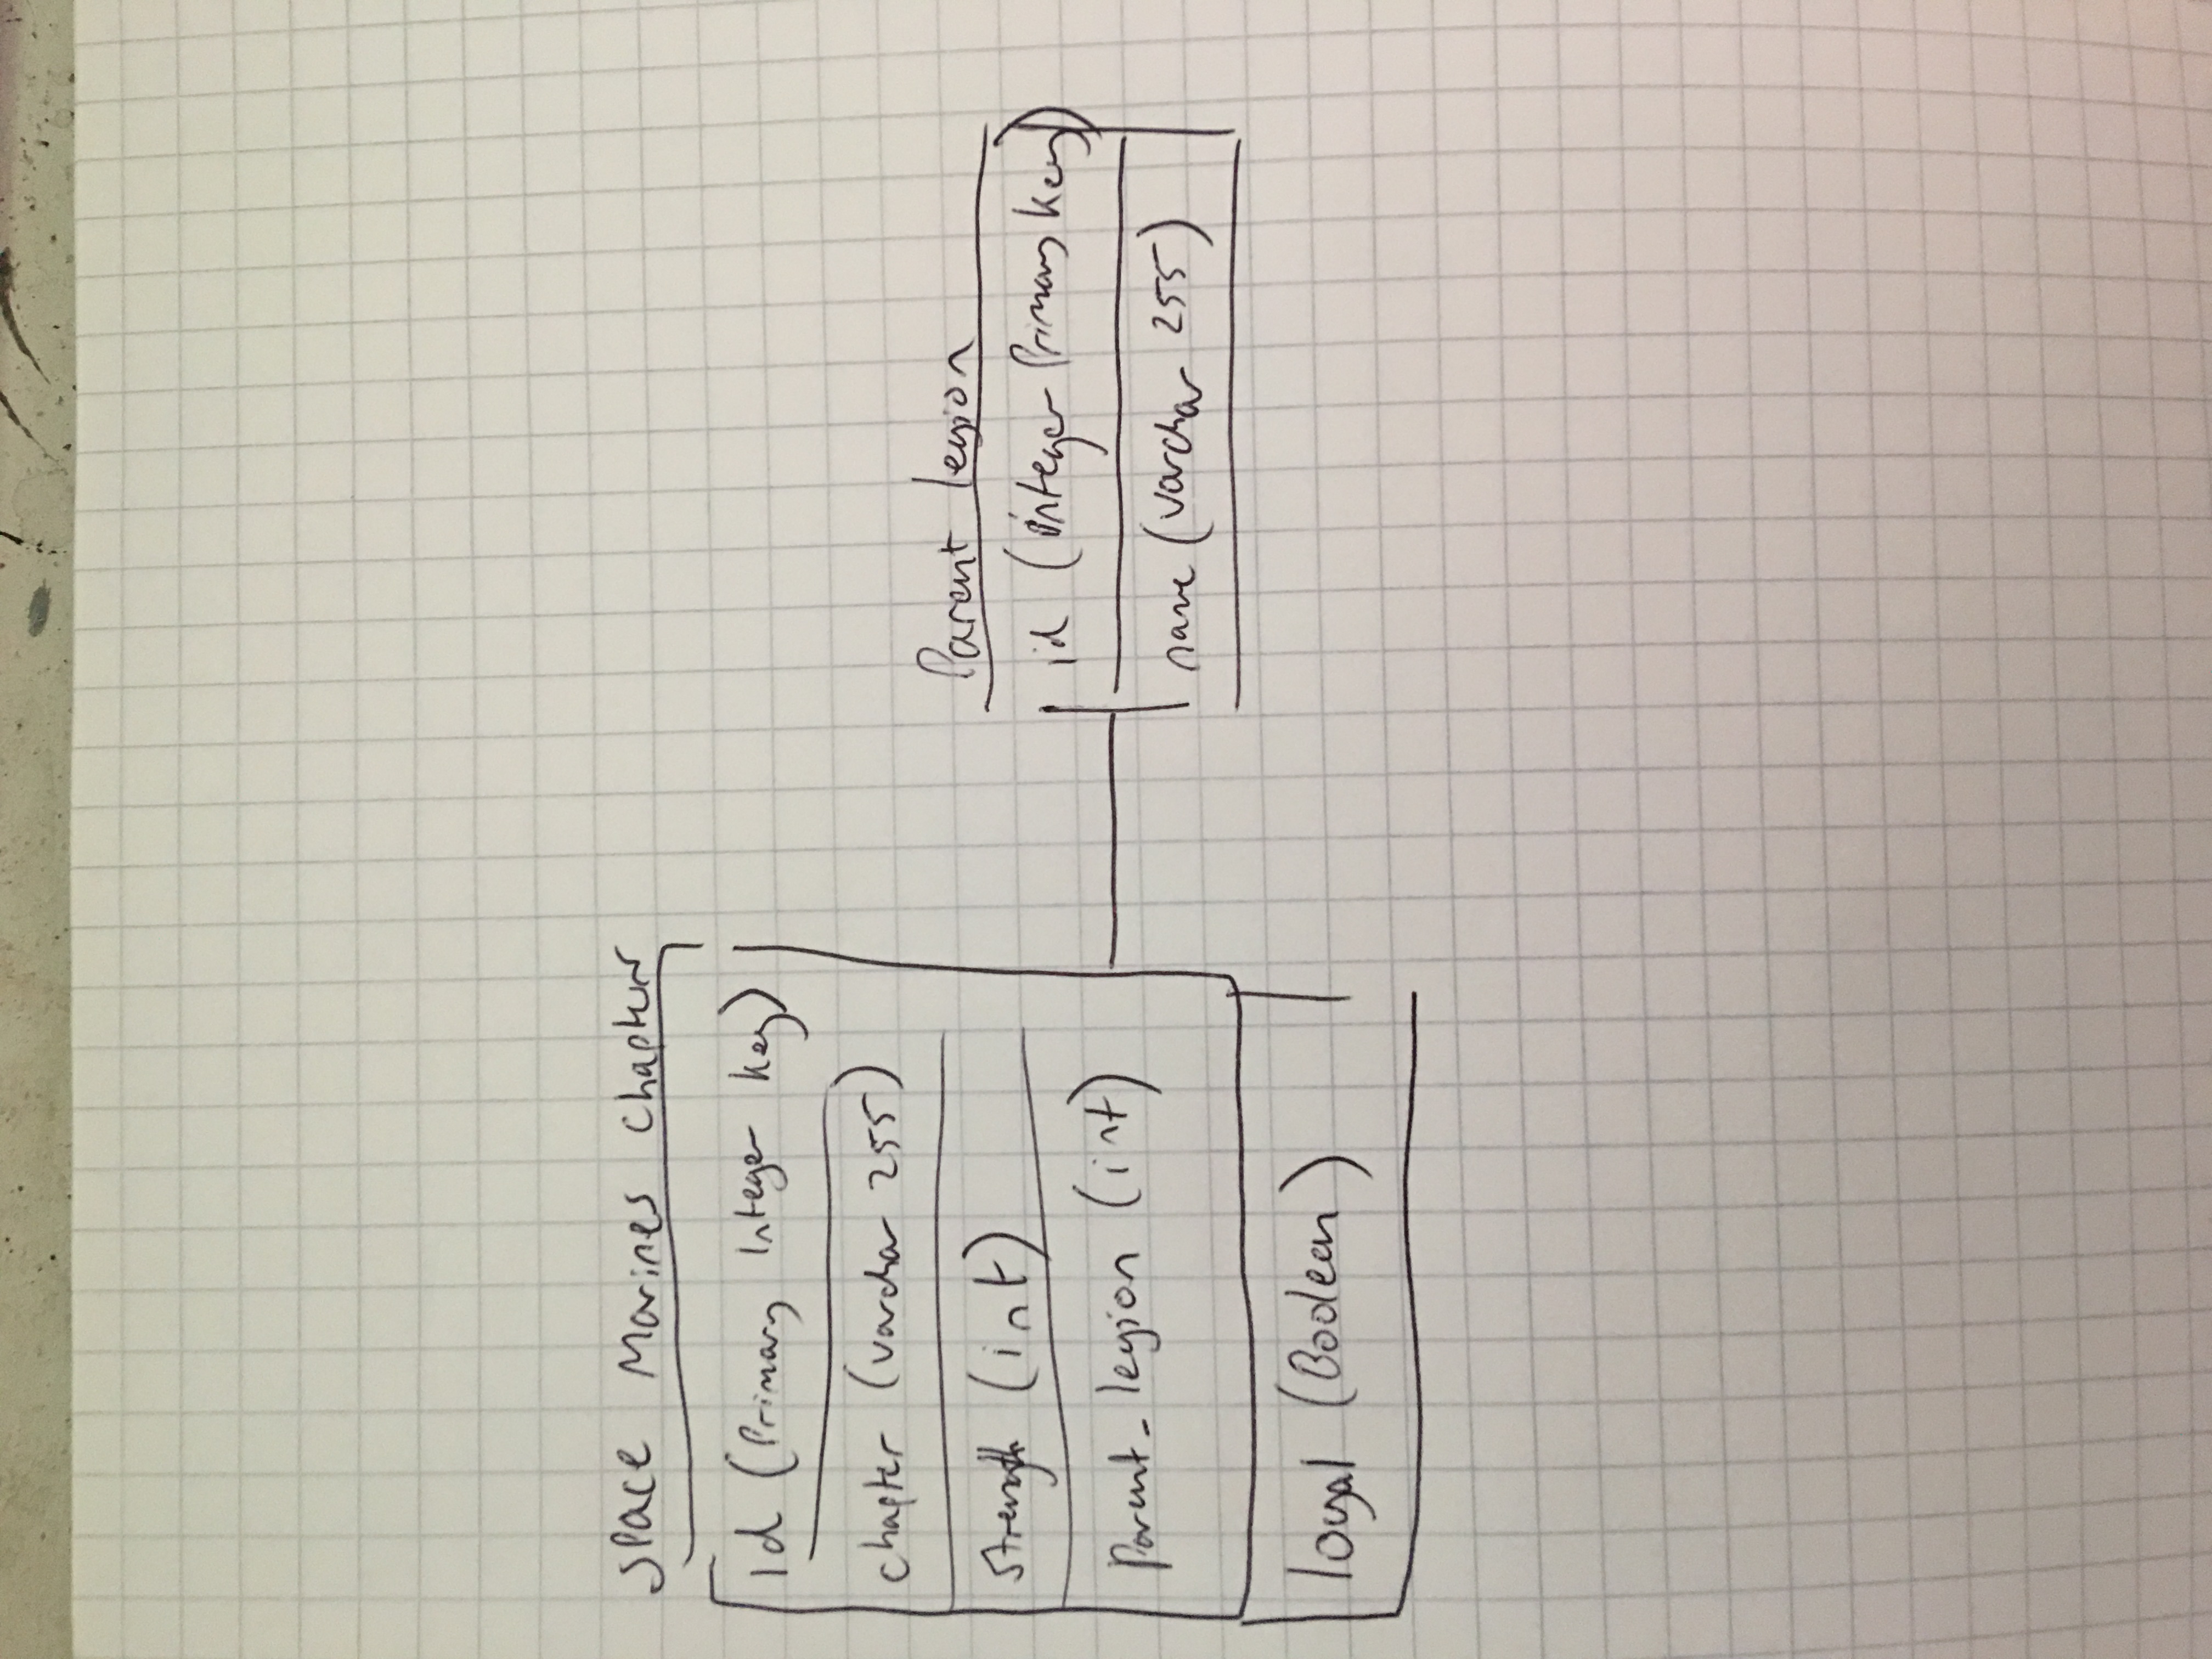 Space Marines Chapters
id (Primary Integer Key)
chapter (varchar 255)
strength (int)
Parent_legion (int)
loyal (Boolean)
Parent legion
id (integer Primary Key)
name (varchar 255)